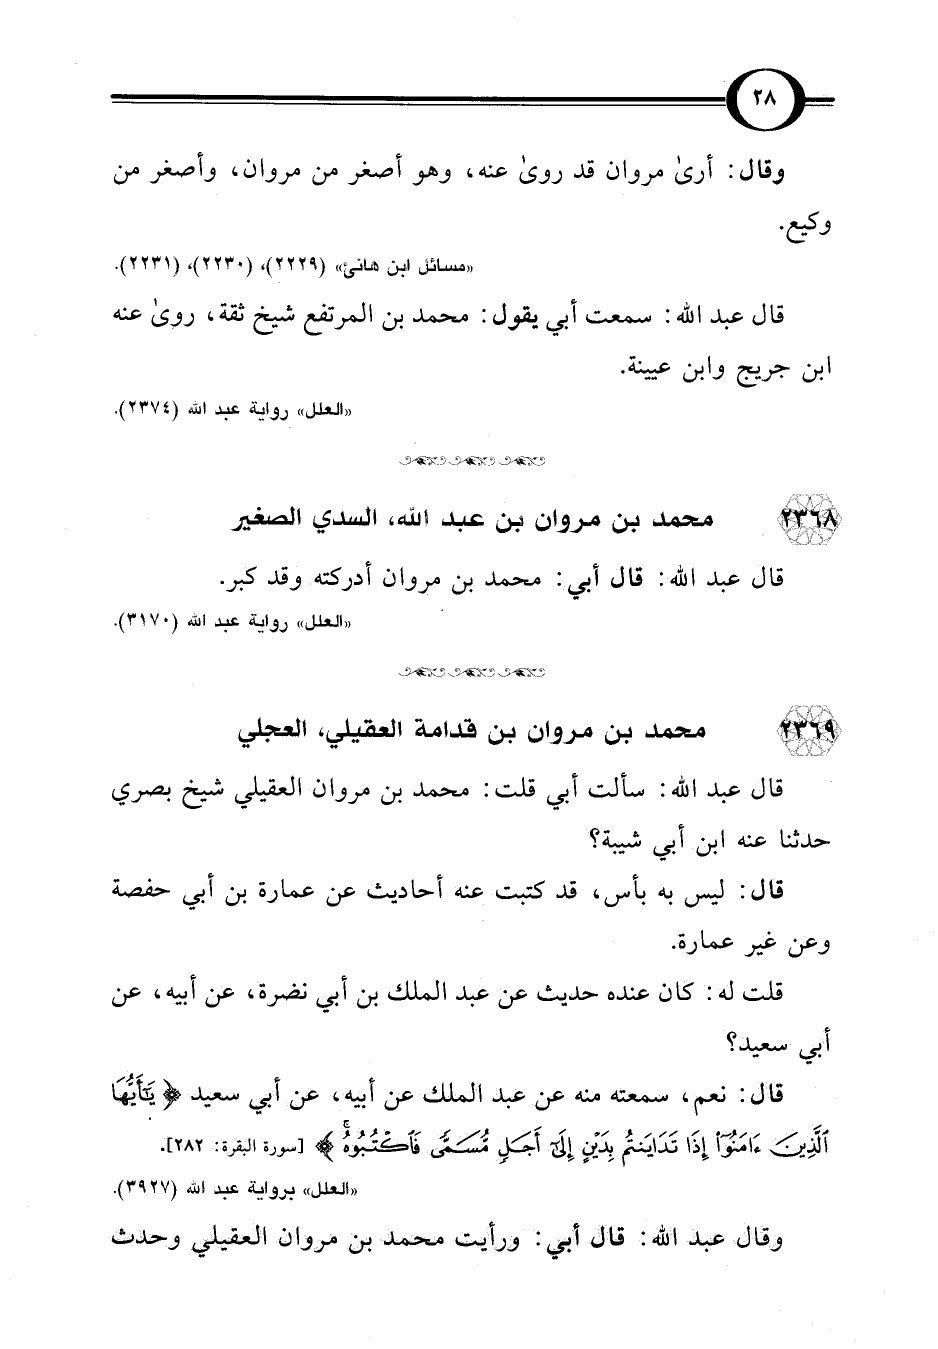 ٢٨
وقال: أرىٰ مروان قد روىٰ عنه، وهو أصغر من مروان، وأصغر من
وكيع.
«مسائل ابن هانئ» (٢٢٢٩)، (٢٢٣٠)، (٢٢٣١).
قال عبد الله: سمعت أبي يقول: محمد بن المرتفع شيخ ثقة، روىٰ عنه
ابن جريج وابن عيينة.
«العلل» رواية عبد الله (٢٣٧٤).
٢٣٦٨ محمد بن مروان بن عبد الله، السدي الصغير
قال عبد الله: قال أبي: محمد بن مروان أدركته وقد كبر.
«العلل» رواية عبد الله (٣١٧٠).
٢٣٦٩ محمد بن مروان بن قدامة العقيلي، العجلي
قال عبد الله: سألت أبي قلت: محمد بن مروان العقيلي شيخ بصري
حدثنا عنه ابن أبي شيبة؟
قال: ليس به بأس، قد كتبت عنه أحاديث عن عمارة بن أبي حفصة
وعن غير عمارة.
قلت له: كان عنده حديث عن عبد الملك بن أبي نضرة، عن أبيه، عن
أبي سعيد؟
قال: نعم، سمعته منه عن عبد الملك عن أبيه، عن أبي سعيد ﴿يَٰٓأَيُّهَا
ٱلَّذِينَ ءَامَنُوٓا۟ إِذَا تَدَايَنتُم بِدَيْنٍ إِلَىٰٓ أَجَلٍ مُّسَمًّى فَٱكْتُبُوهُ ۚ﴾ [سورة البقرة: ٢٨٢].
«العلل» برواية عبد الله (٣٩٢٧).
وقال عبد الله: قال أبي: ورأيت محمد بن مروان العقيلي وحدث